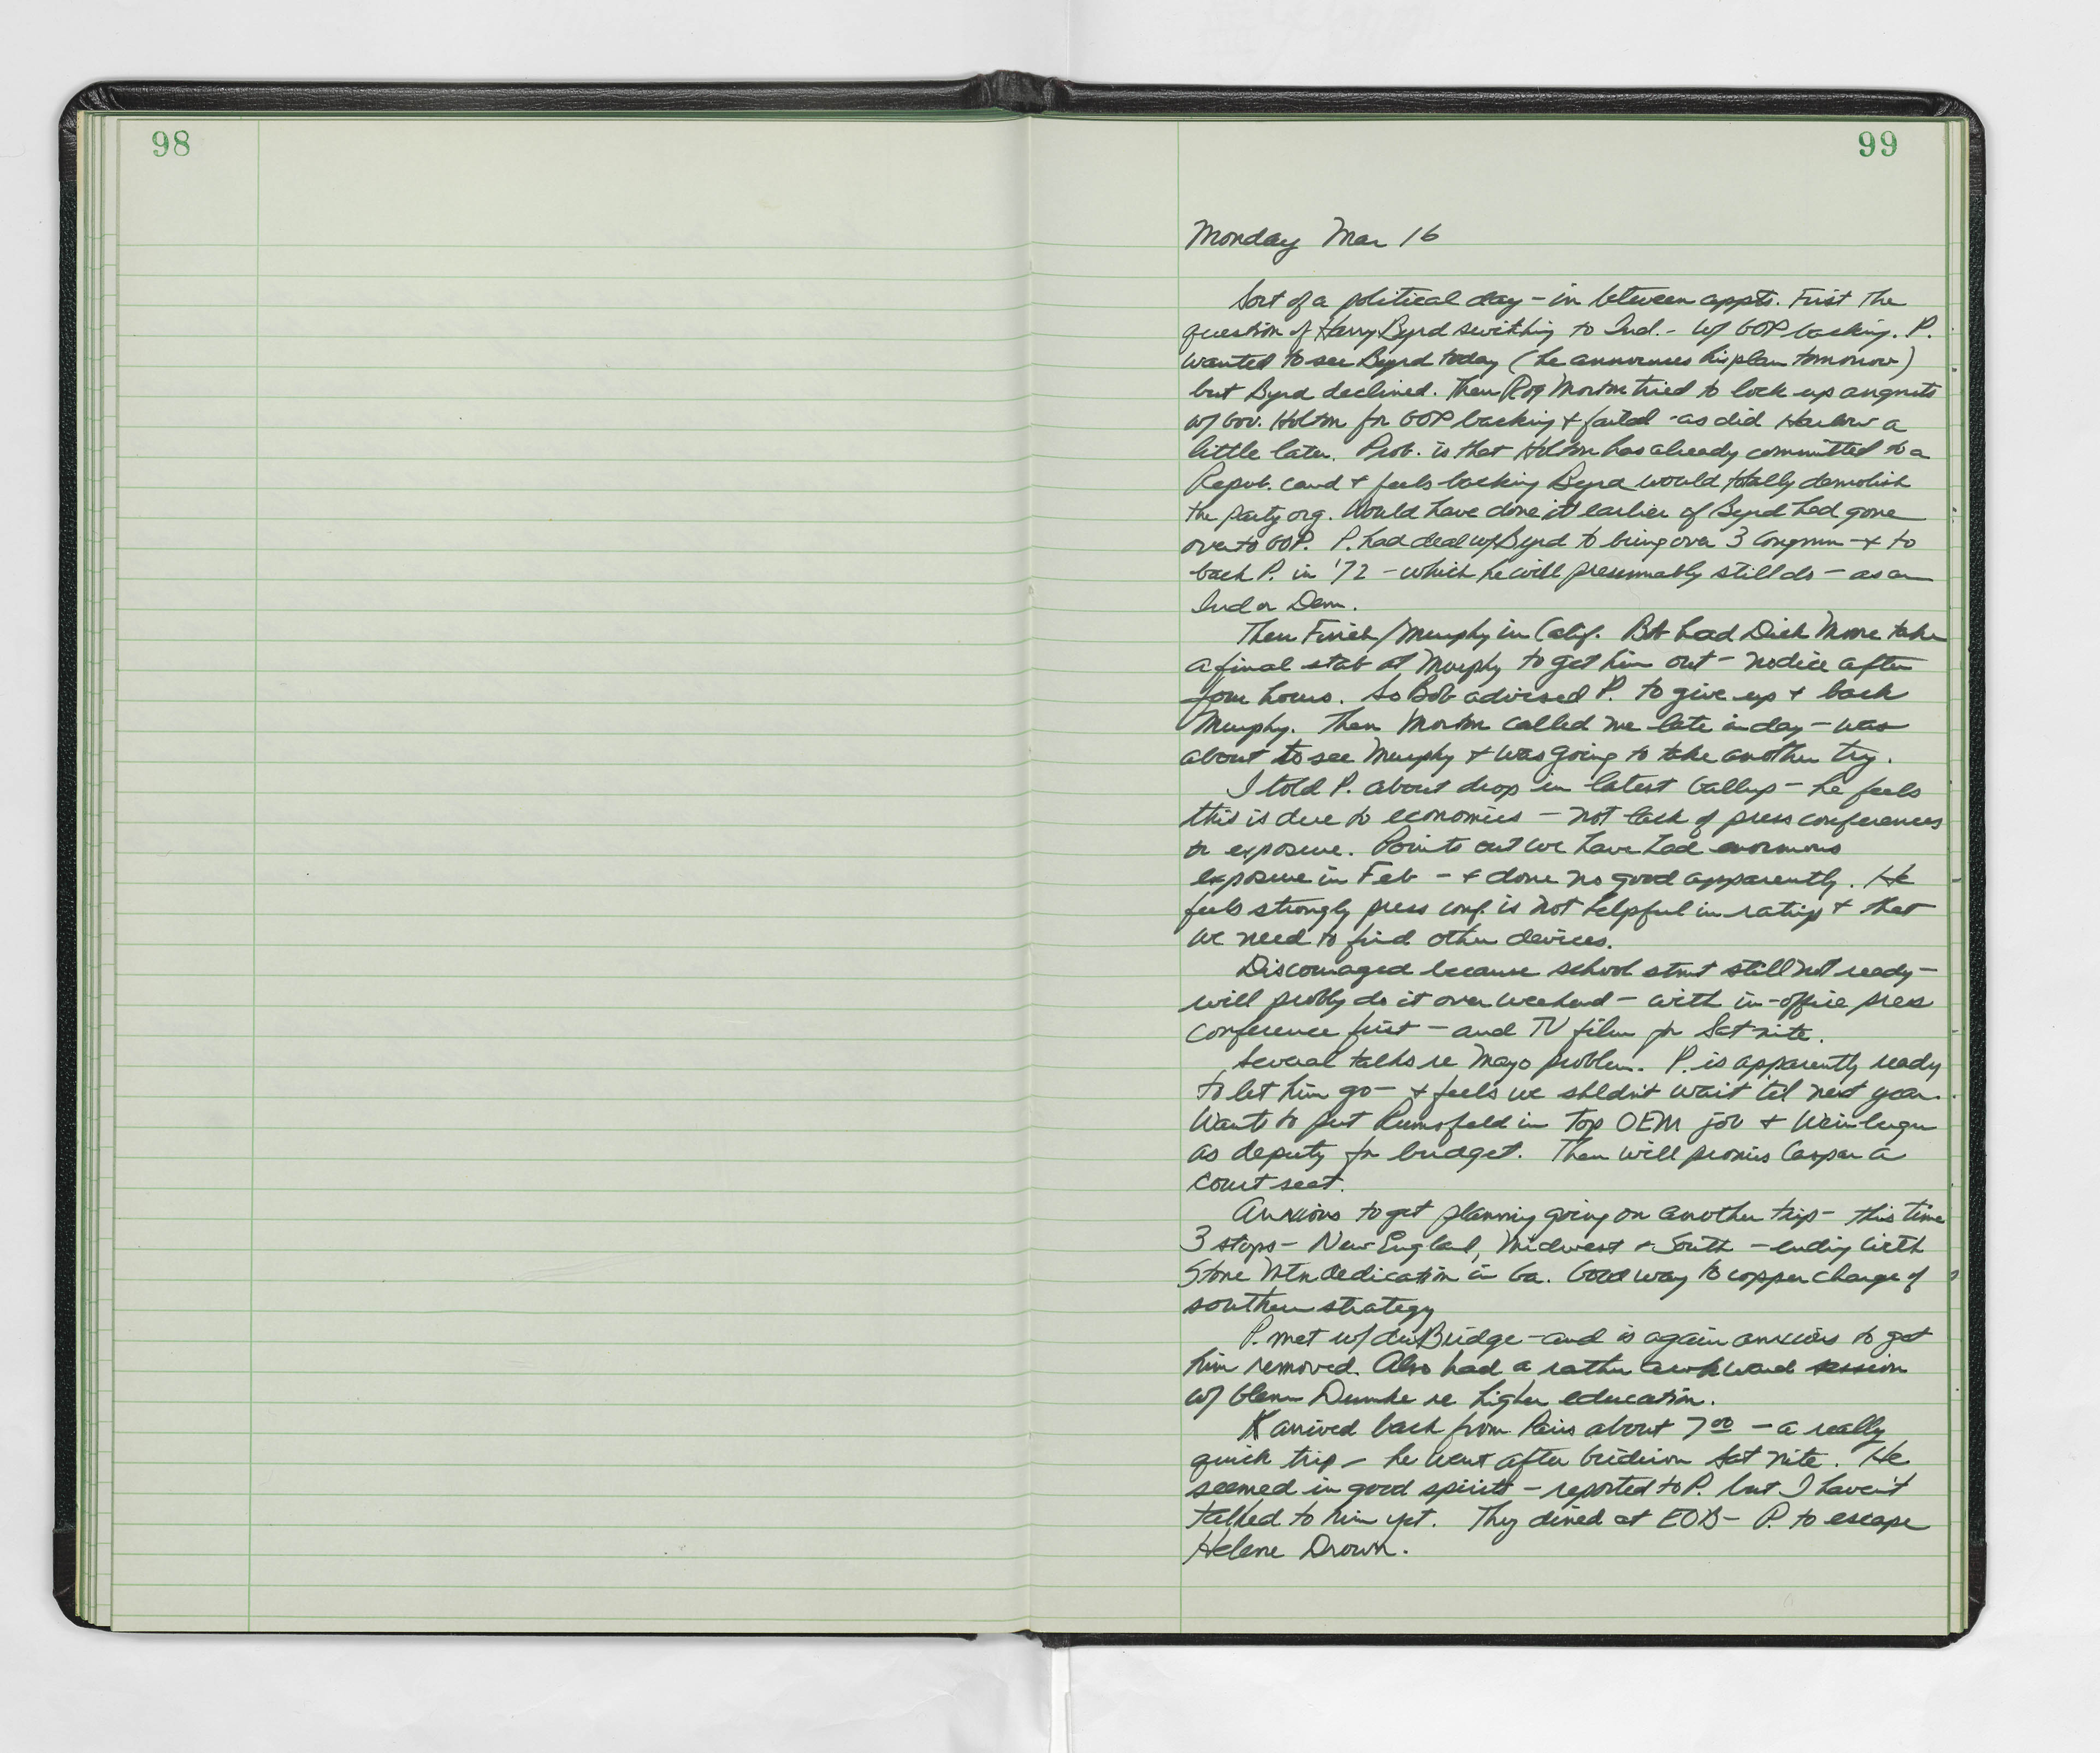 98
99
Monday Mar 16
Sort of a political day - in between appts. First the
question of Harry Byrd swithing to Ind. - w/ GOP backing. P.
wanted to see Byrd today (he announces his plan tomorrow)
but Byrd declined. Then Rog Morton tried to lock up arrgmts
w/ Gov. Holton for GOP backing & failed - as did Harlow a
little later. Prob. is that Holton has already committed to a
Repub. cand & feels backing Byrd would totally demolish
the party org. Would have done it earlier if Byrd had gone
over to GOP. P. had deal w/ Byrd to bring over 3 Congmn - & to
back P. in '72 - which he will presumably still do - as an
Ind or Dem.
Then Finch/Murphy in Calif. Bob had Dick Moore take
a final stab at Murphy to get him out - no dice after
four hours. So Bob advised P. to give up & back
Murphy. Then Morton called me late in day - was
about to see Murphy & was going to take another try.
I told P. about drop in latest Gallup - he feels
this is due to economics - not lack of press conferences
or exposure. Points out we have had enormous
exposure in Feb - & done no good apparently. He
feels strongly press conf. is not helpful in ratings & that
we need to find other devices.
Discouraged because school stmt still not ready -
will probly do it over weekend - with in-office press
conference first - and TV film for Sat nite.
Several talks re Mayo problem. P. is apparently ready
to let him go - & feels we shldn't wait 'til next year.
Wants to put Rumsfeld in top OEM job & Weinberger
as deputy for budget. Then will promis Caspar a
court seat.
Anxious to get planning going on another trip - this time
3 stops - New England, Midwest & South - ending with
Stone Mtn dedication in Ga. Good way to copper charge of
southern strategy
P. met w/ duBridge - and is again anxious to get
him removed. Also had a rather awkward session
w/ Glenn Dumke re higher education.
K arrived back from Paris about 7 00 - a really
quick trip - he went after Gridiron Sat nite. He
seemed in good spirits - reported to P. but I haven't
talked to him yet. They dined at EOB - P. to escape
Helene Drown.